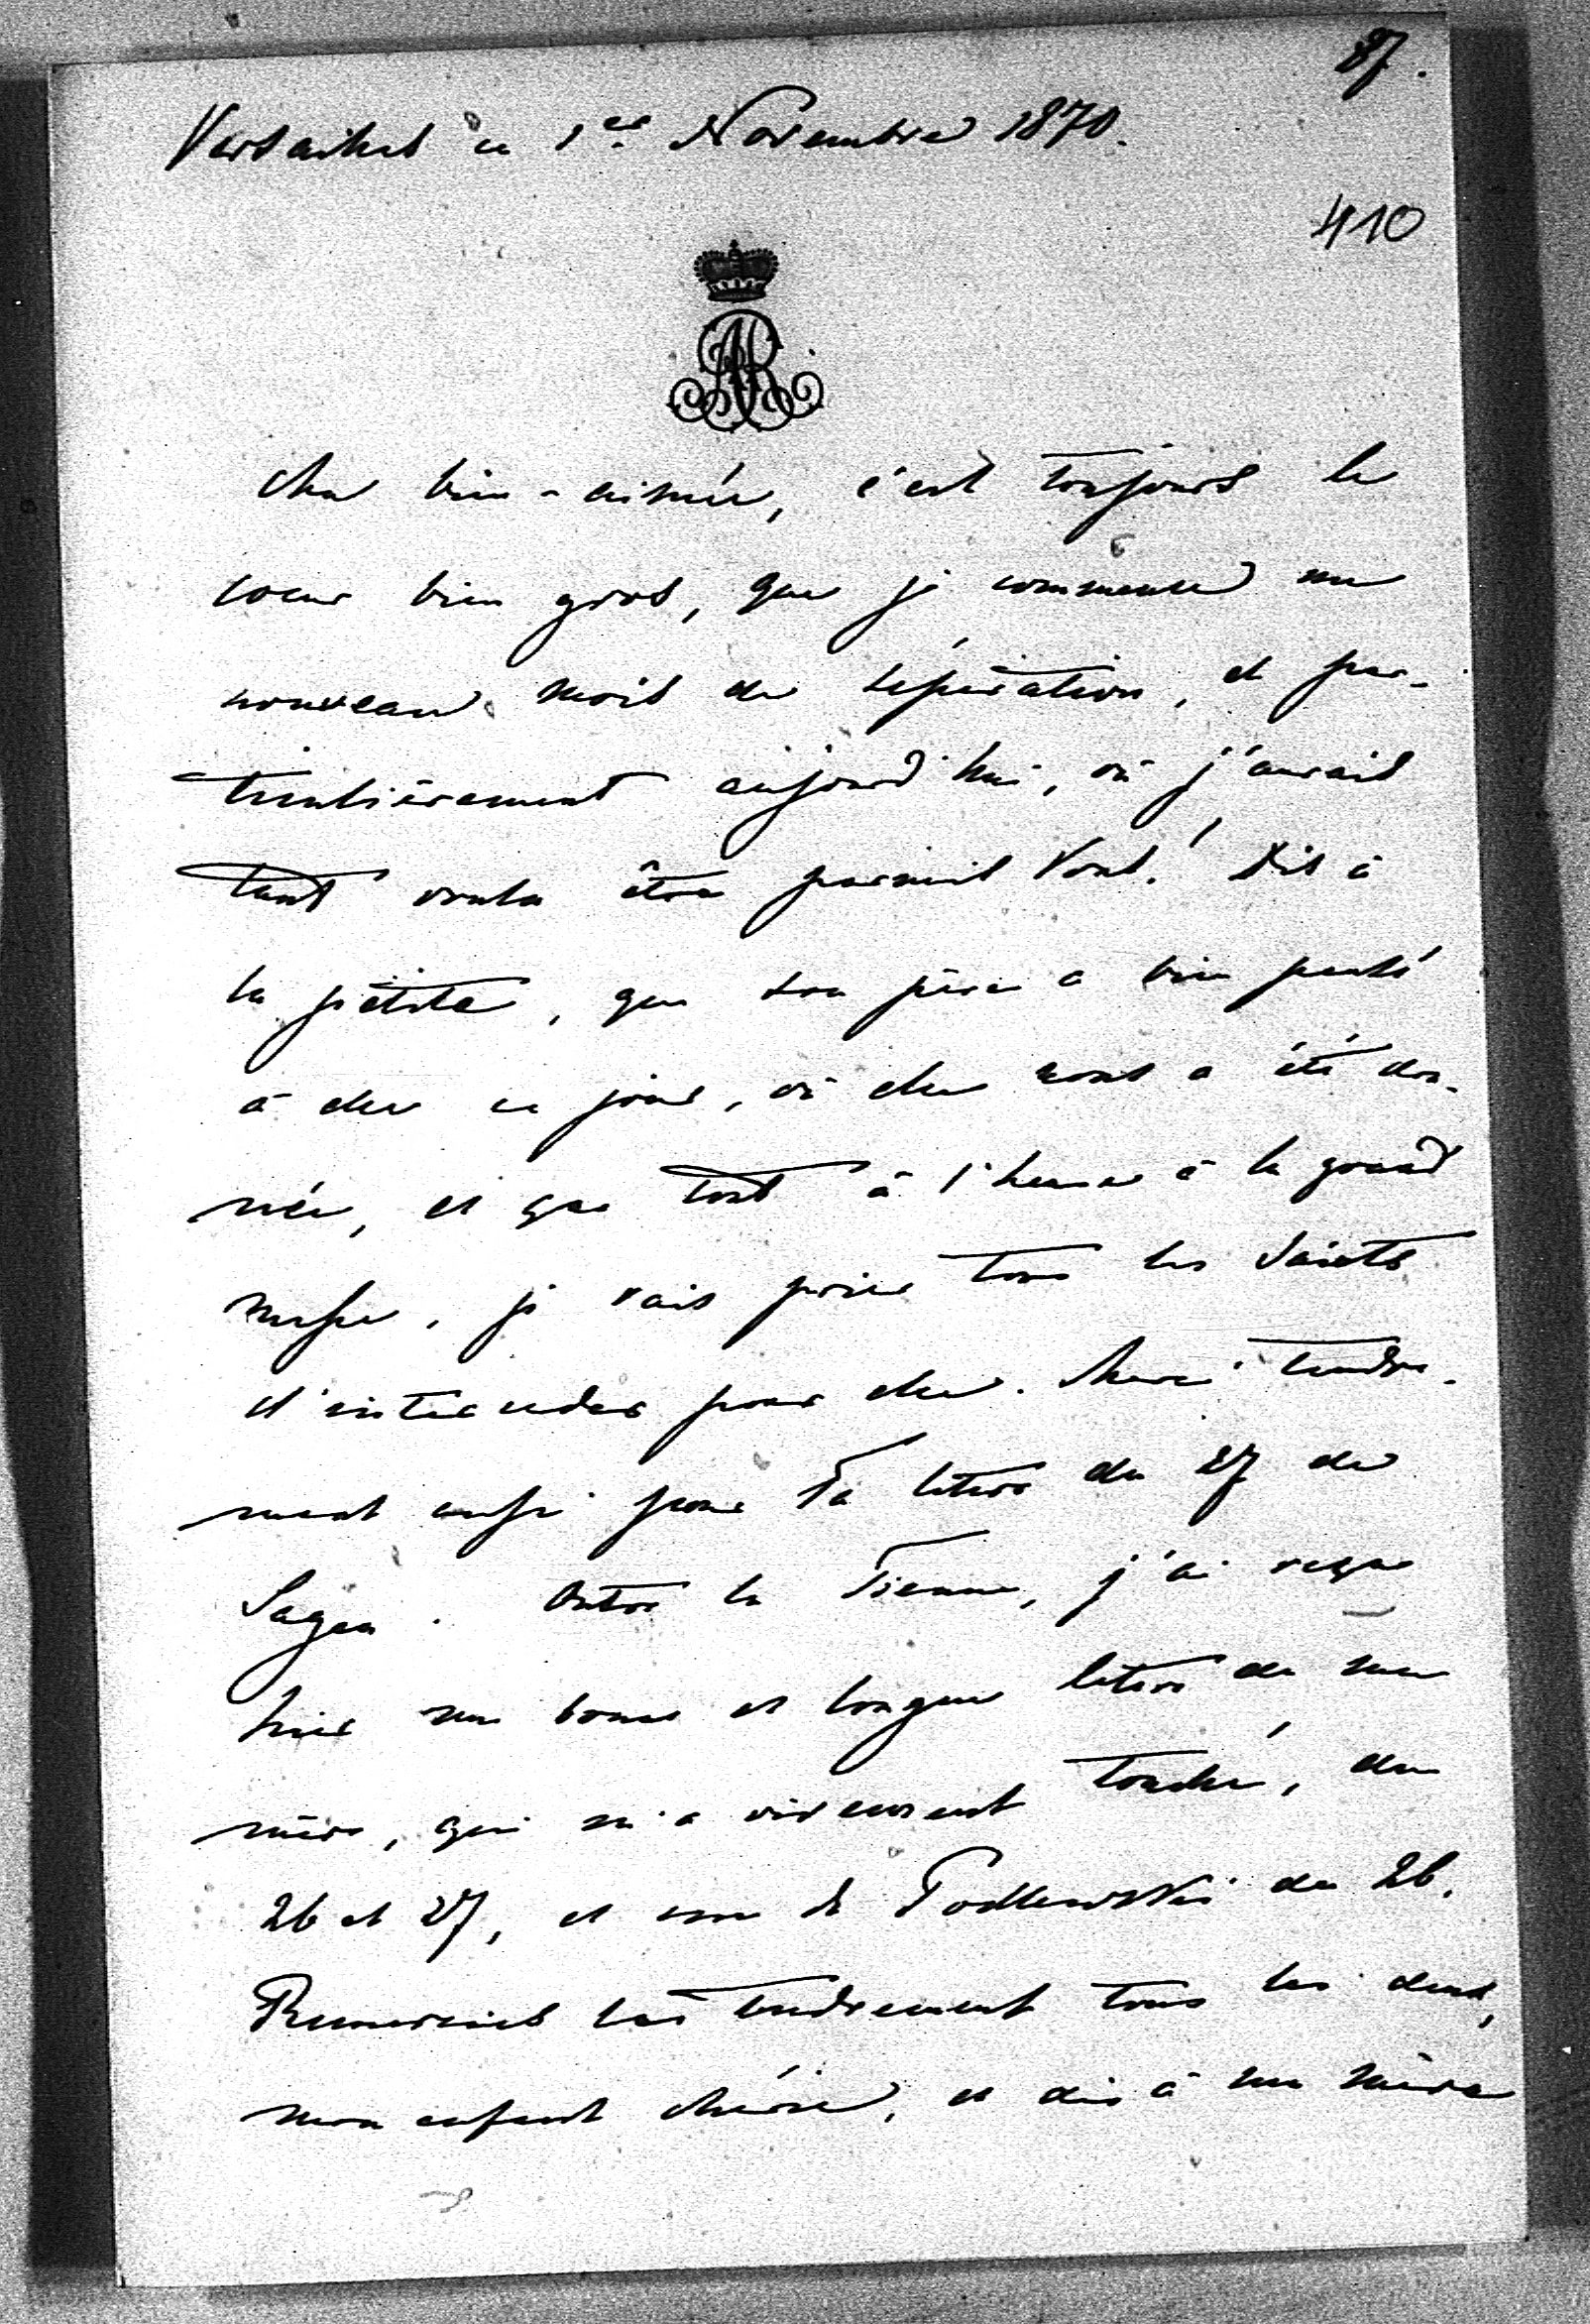 87.
Versailles ce 1er Novembre 1870.
410
AR
Ma bien-aimée, c'est toujours le
coeur bien gros, que je commence un
nouveau mois de séparation, et par-
ticulièrement aujourd'hui, où j'aurais
tant voulu être parmis Vous! Dis à
la petite, que son père a bien pensé
à elle ce jour, où elle nous a été don-
née, et que tout à l'heure à la grand
messe, je vais prier tous les Saints
d'intercéder pour elle. Merci tendre-
ment aussi pour Ta lettre du 27 de
Sagan. Outre la Tienne, j'ai reçu
hier une bonne et longue lettre de ma
mère, qui m'a vivement touché, du
26 et 27, et une de Podlewski du 26.
Remercies les tendrement tous les deux,
mon enfant chérie, et dis à ma mère